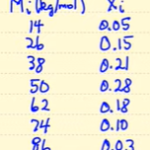 Mi (kg/mol) Xi
14 0.05
26 0.15
38 0.21
50 0.28
62 0.18
74 0.10
86 0.03